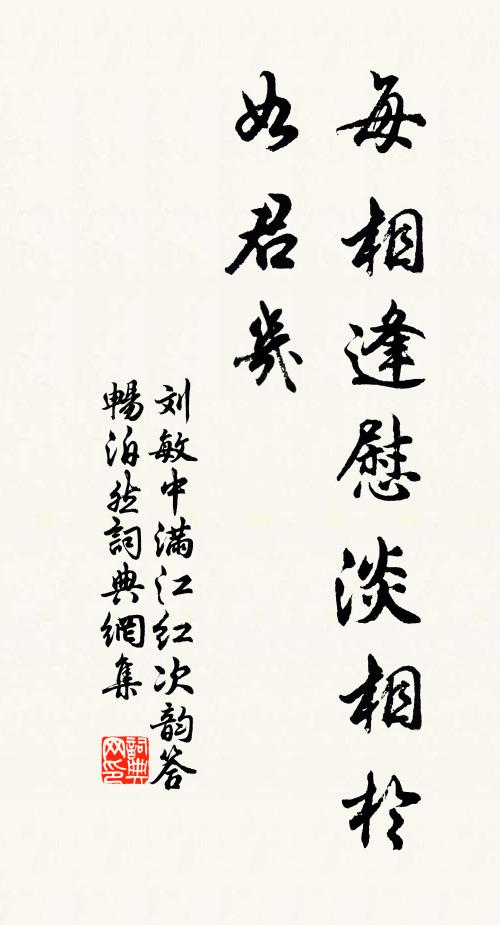 每相逢慰淡相於
如君幾
刘敏中满江红次韵答
暢泊然詞典網集
詞典网印